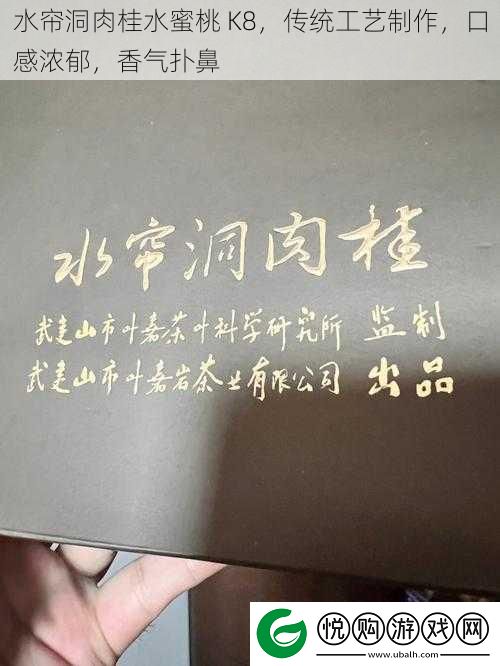 水帘洞肉桂水蜜桃 K8，传统工艺制作，口
感浓郁，香气扑鼻
水帘洞肉桂
武夷山市叶嘉茶叶科学研究所 监制
武夷山市叶嘉岩茶业有限公司 出品
悦购游戏网
www.ubalh.com